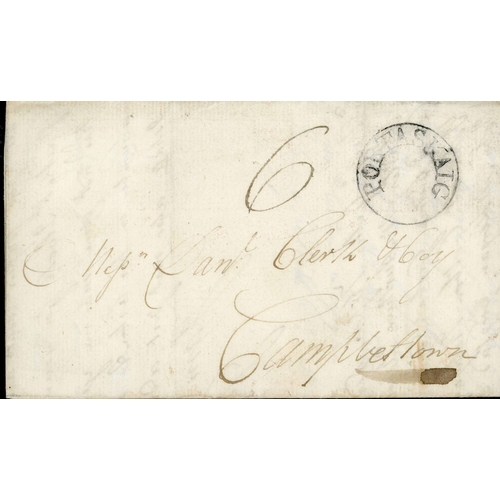 6
PORTASKAIG
Messrs Danl. Clerk & Coy
Campbeltown